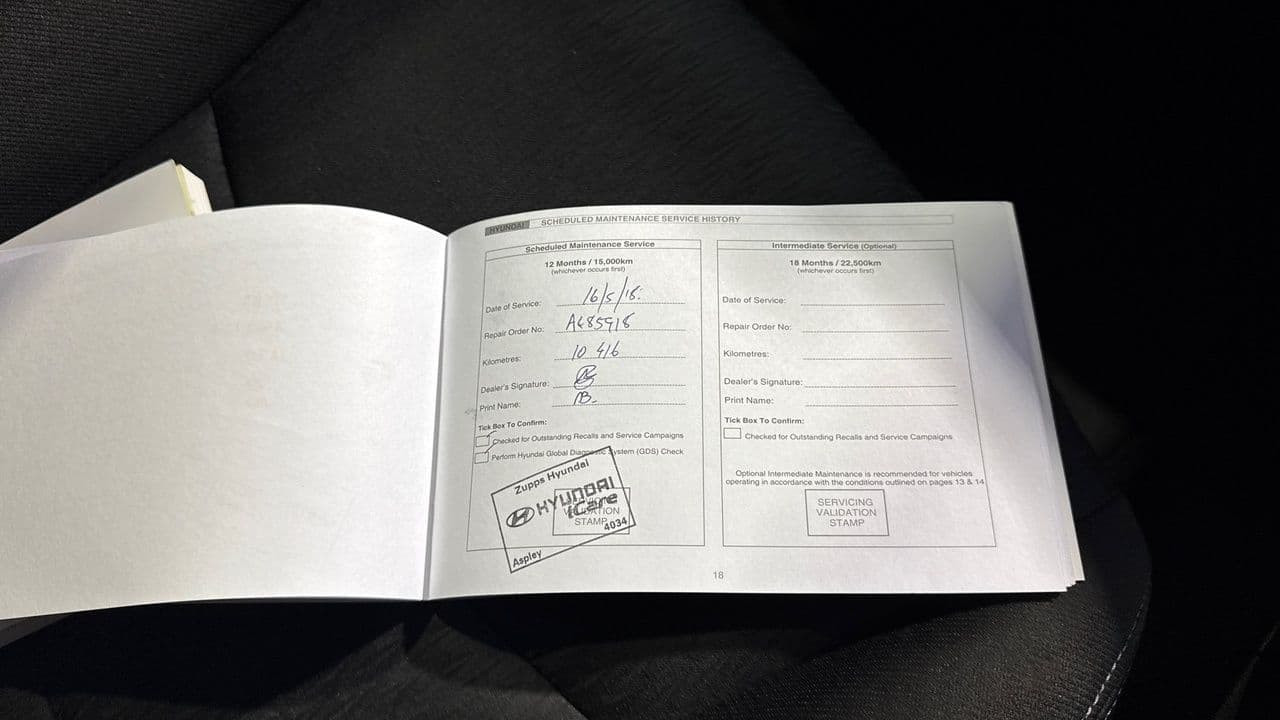 HYUNDAI SCHEDULED MAINTENANCE SERVICE HISTORY
Scheduled Maintenance Service
12 Months / 15,000km
(whichever occurs first)
Date of Service: 16/5/18.
Repair Order No:
Kilometres: 10 416
Dealer's Signature:
Print Name:
Tick Box To Confirm:
Checked for Outstanding Recalls and Service Campaigns
Perform Hyundai Global Diagnostic System (GDS) Check
Zupps Hyundai
HYUNDAI
iCare
VALIDATION
STAMP
4034
Aspley
Intermediate Service (Optional)
18 Months / 22,500km
(whichever occurs first)
Date of Service:
Repair Order No:
Kilometres:
Dealer's Signature:
Print Name:
Tick Box To Confirm:
Checked for Outstanding Recalls and Service Campaigns
Optional Intermediate Maintenance is recommended for vehicles
operating in accordance with the conditions outlined on pages 13 & 14
SERVICING
VALIDATION
STAMP
18